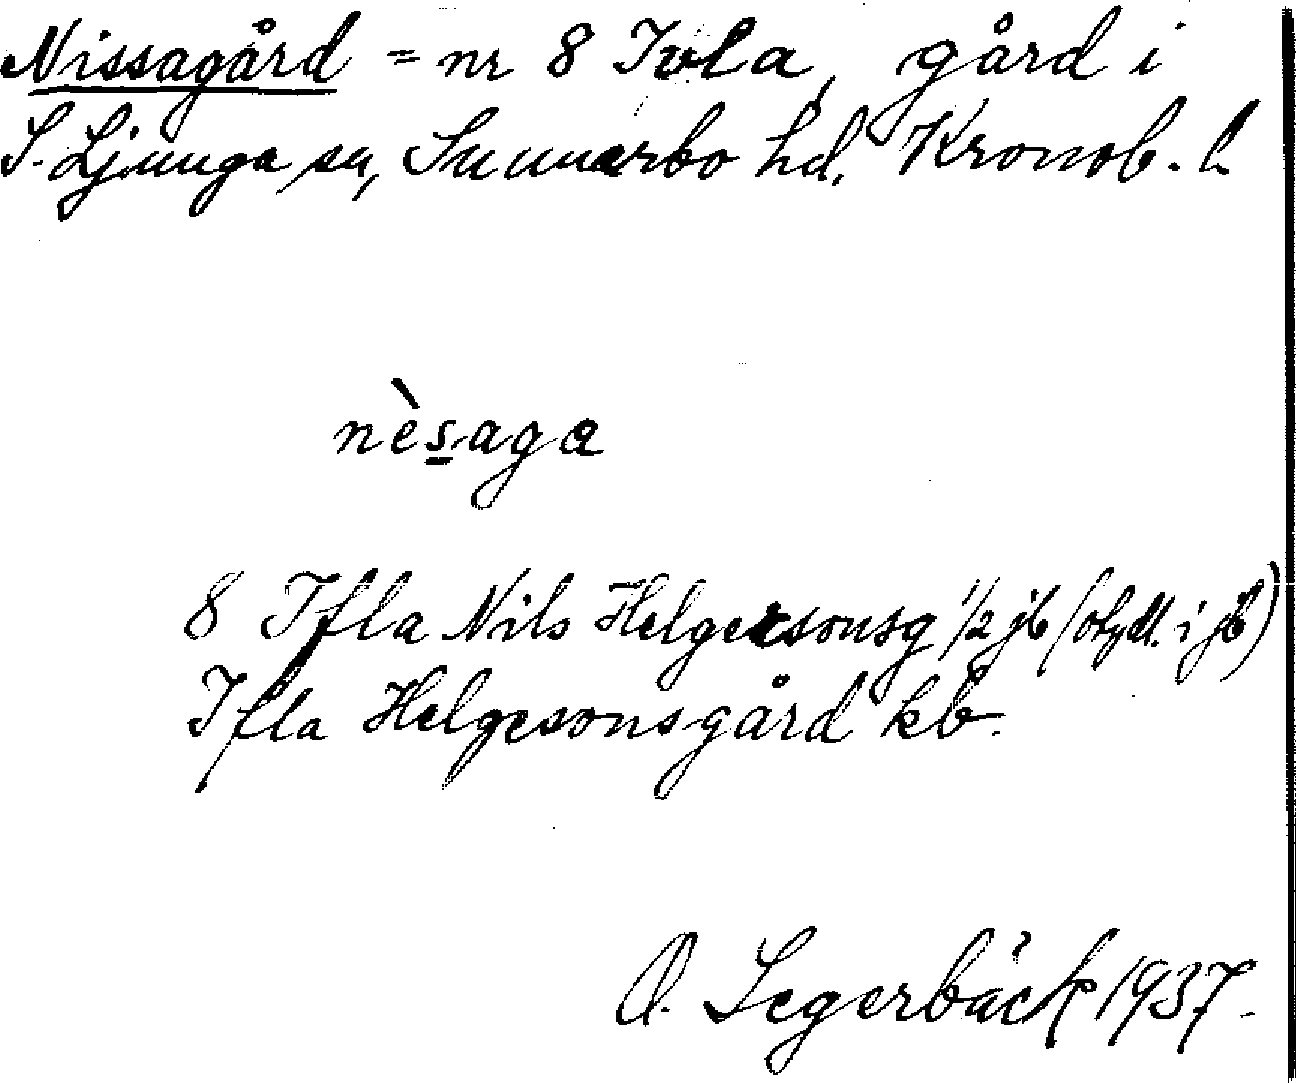 Nissagård = nr 8 Ivla, gård i
S. Ljunga sn, Sunnerbo hd. Kronob. l
nèsaga
8 Ifla Nils Helgersonsg 1/2 jb ( i jb)
Ifla Helgesonsgård kb.
O. Segerbäck 1937.